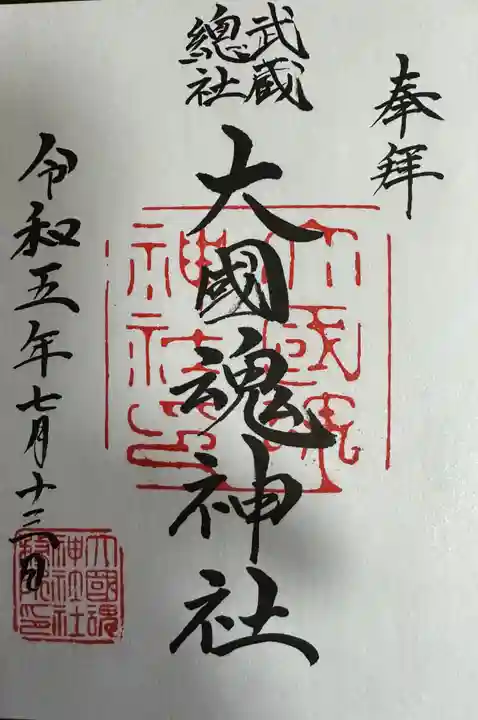 奉拝
武蔵
總社
大國魂神社
令和五年七月十三日
大國魂
神社印
大國魂
神社社